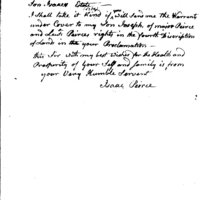 I Shall take it Kind if you will Send me the Warrants
under Cover to my Son Joseph, of major Peirce
and Leut Peirces rights in the fourth Divission
of Land in the your Proclamation
this Sir with my best Wishes for the Health and
Prosperity of your Self and family is from
your Very Humble Servant
Isaac Peirce